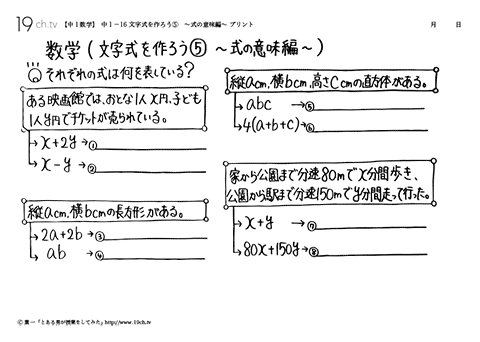 19ch.tv 【中1数学】 中1-16文字式を作ろう⑤ ～式の意味編～ プリント 月 日
数学(文字式を作ろう⑤ ～式の意味編～)
それぞれの式は何を表している?
ある映画館では、おとな1人x円、子ども
1人y円でチケットが売られている。
x+2y→①
x-y→②
縦acm、横bcmの長方形がある。
2a+2b→③
ab→④
縦acm、横bcm、高さCcmの直方体がある。
abc→⑤
4(a+b+c)→⑥
家から公園まで分速80mでx分間歩き、
公園から駅まで分速150mでy分間走って行った。
x+y→⑦
80x+150y→⑧
© 葉一「とある男が授業をしてみた」http://www.19ch.tv